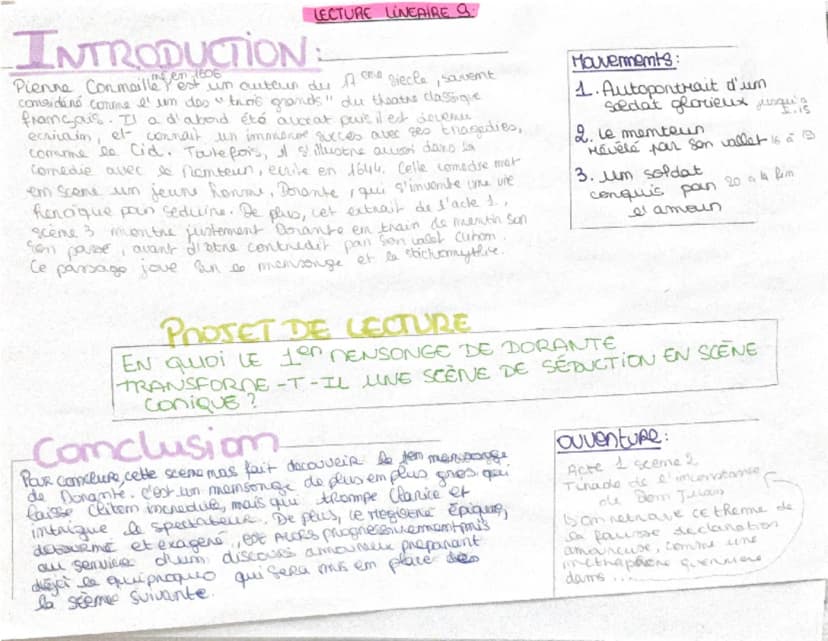 LECTURE LINEAIRE 9:
INTRODUCTION:
né en 1606
Pierre Corneille, est un auteur du 17 eme siècle, souvent
considéré comme l'un des "trois grands" du théatre classique
français. Il a d'abord été avocat puis il est devenu
ecrivain, et connait un immense succès avec ses tragédies,
comme le Cid. Toutefois, il s'illustre aussi dans la
comedie avec le Menteur, ecrite en 1644. Celle comedie met
en scene un jeune homme, Dorante, qui s'invente une vie
heroïque pour seduire. De plus, cet extrait de l'acte 1,
scène 3 montre justement Dorante en train de mentir son
son passé, avant d'etre contredit par son valet
Ce passage joue sur le mensonge et la stichomythie.
Mouvements:
1. Autoportrait d'un
soldat glorieux jusqu'à l.15
2. Le menteur
révélé par son vallet 16 à 19
3. Un soldat
conquis par 20 à la fin
l'amour
PROJET DE LECTURE
EN QUOI LE 1er MENSONGE DE DORANTE
TRANSFORME-T-IL UNE SCÈNE DE SÉDUCTION EN SCÈNE
COMIQUE?
Conclusion
Pour conclure, cette scene nos fait découvrir le 1er mensonge
de Dorante. C'est un mensonge de plus en plus gros qui
laisse Cliton incredule, mais qui trompe Clarice et
intrigue le spectateur. De plus, le registre épique,
detourné et exagéré, est alors progressivement mis
au service d'un discours amoureux preparant
déjà le quiproquo qui sera mis en place
la scène suivante.
OUVERTURE:
Acte 1 scene 2
Tirade de l'inconstance
de Dom Juan
L'on retrouve ce theme de
la fausse declaration
amoureuse, comme une
métaphore guerriere
dans ...